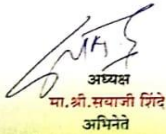 अध्यक्ष
मा.श्री.सयाजी शिंदे
अभिनेते